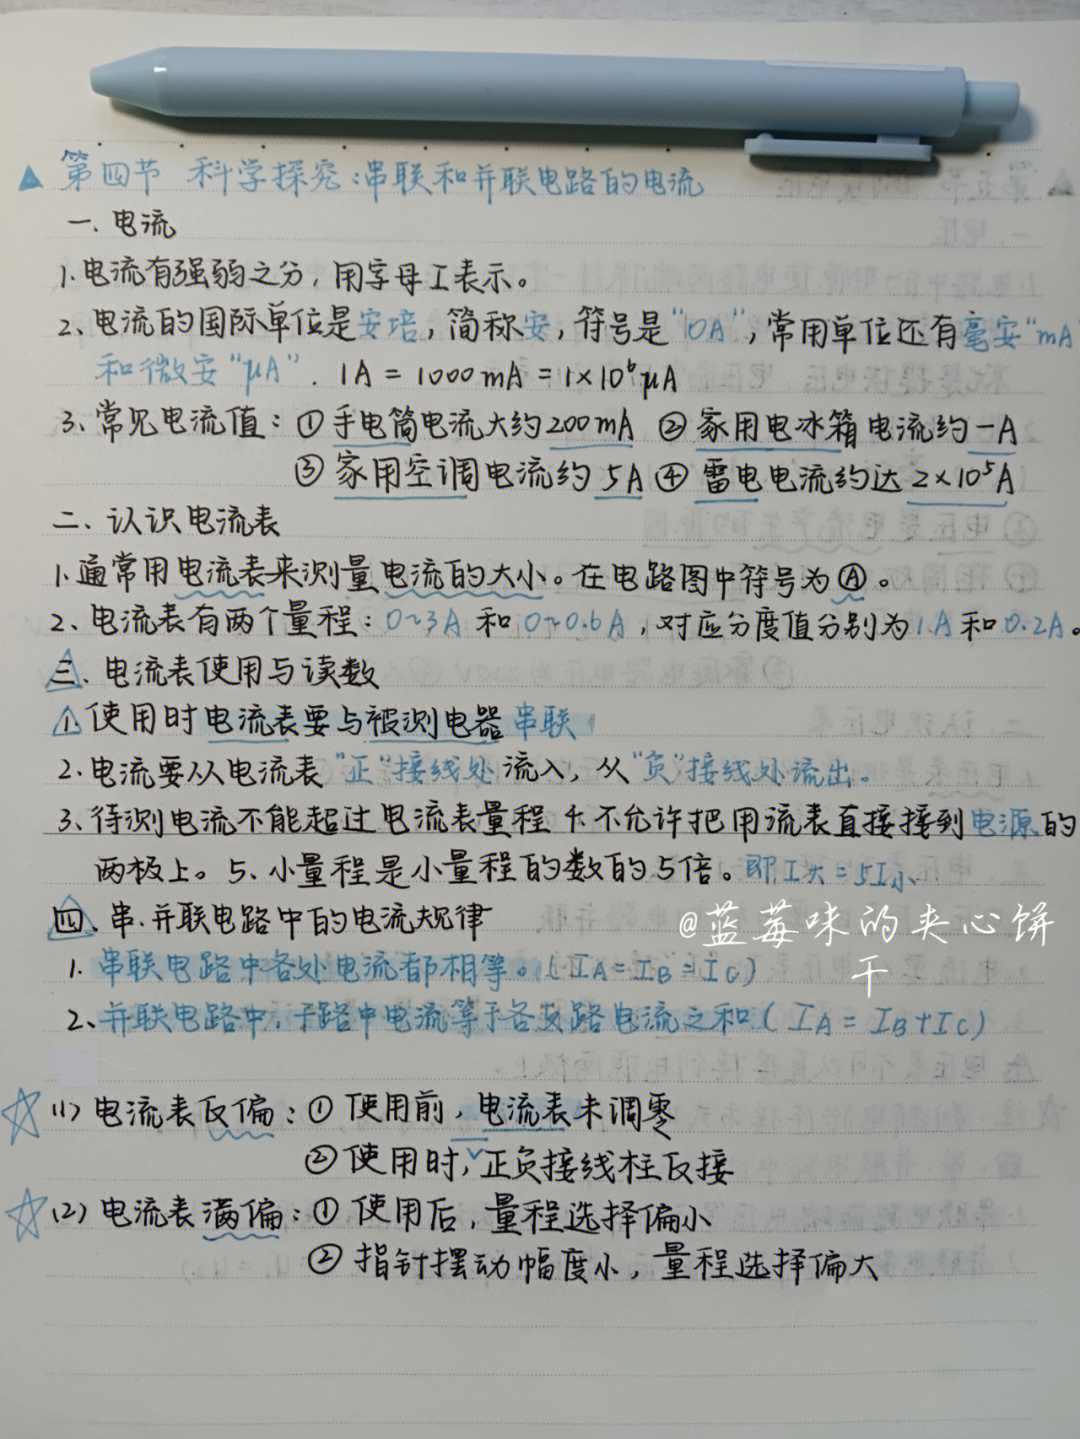 第四节 科学探究:串联和并联电路的电流
一.电流
1.电流有强弱之分,用字母I表示。
2、电流的国际单位是安培,简称安,符号是"0A",常用单位还有毫安"mA
和微安"μA". 1A=1000mA=1×10⁶μA
3、常见电流值:①手电筒电流大约200mA ②家用电冰箱电流约一A
③家用空调电流约5A ④雷电电流约达2×10⁵A
二、认识电流表
1.通常用电流表来测量电流的大小。在电路图中符号为Ⓐ。
2、电流表有两个量程:0~3A和0~0.6A,对应分度值分别为1A和0.2A。
三、电流表使用与读数
1.使用时电流表要与被测电器串联
2.电流要从电流表"正"接线处流入,从"负"接线处流出。
3、待测电流不能超过电流表量程 4.不允许把用流表直接接到电源的
两极上。5、小量程是小量程的数的5倍。即I大=5I小
四、串.并联电路中的电流规律
@蓝莓味的夹心饼
干
1.串联电路中各处电流都相等。(IA=IB=IC)
2、并联电路中,干路中电流等于各支路电流之和(IA=IB+IC)
(1)电流表反偏:①使用前,电流表未调零
②使用时,正负接线柱反接
(2)电流表满偏:①使用后,量程选择偏小
②指针摆动幅度小,量程选择偏大